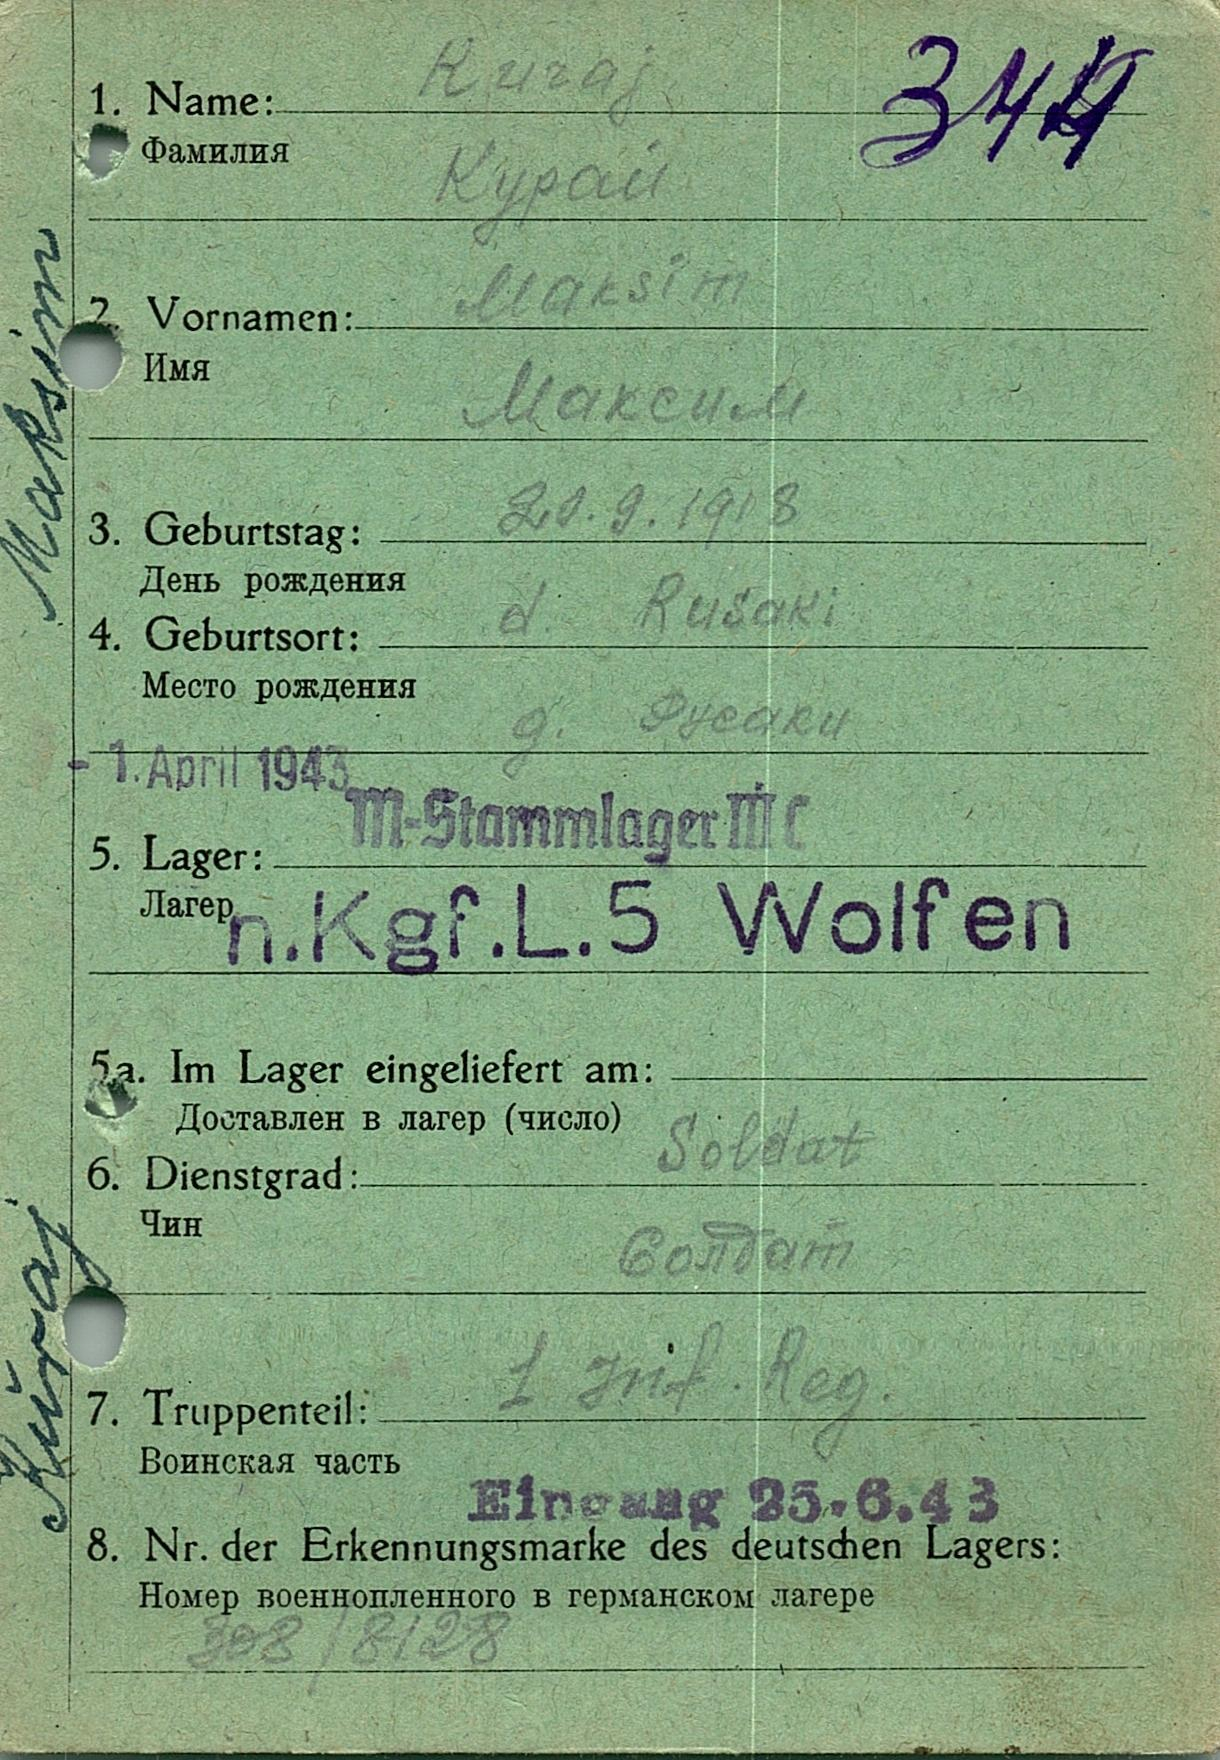 344
1. Name: Kuraj
Фамилия Курай
2. Vornamen: Maksim
Имя
Максим
3. Geburtstag: 20.9.1918
День рождения
4. Geburtsort: d. Rusaki
Место рождения
д. Русаки
- 1. April 1943
M-Stammlager III C
5. Lager:
Лагер
n.Kgf.L.5 Wolfen
5a. Im Lager eingeliefert am:
Доставлен в лагер (число)
6. Dienstgrad: Soldat
Чин
Солдат
7. Truppenteil: 1 Inf. Reg.
Воинская часть
Eingang 25.6.43
8. Nr. der Erkennungsmarke des deutschen Lagers:
Номер военнопленного в германском лагере
308/8128
Maksim
Kuraj